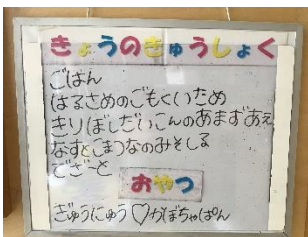 きょうのきゅうしょく
ごはん
はるさめのごもくいため
きりぼしだいこんのあまずあえ
なすとこまつなのみそしる
でざーと
おやつ
ぎゅうにゅう♡かぼちゃぱん